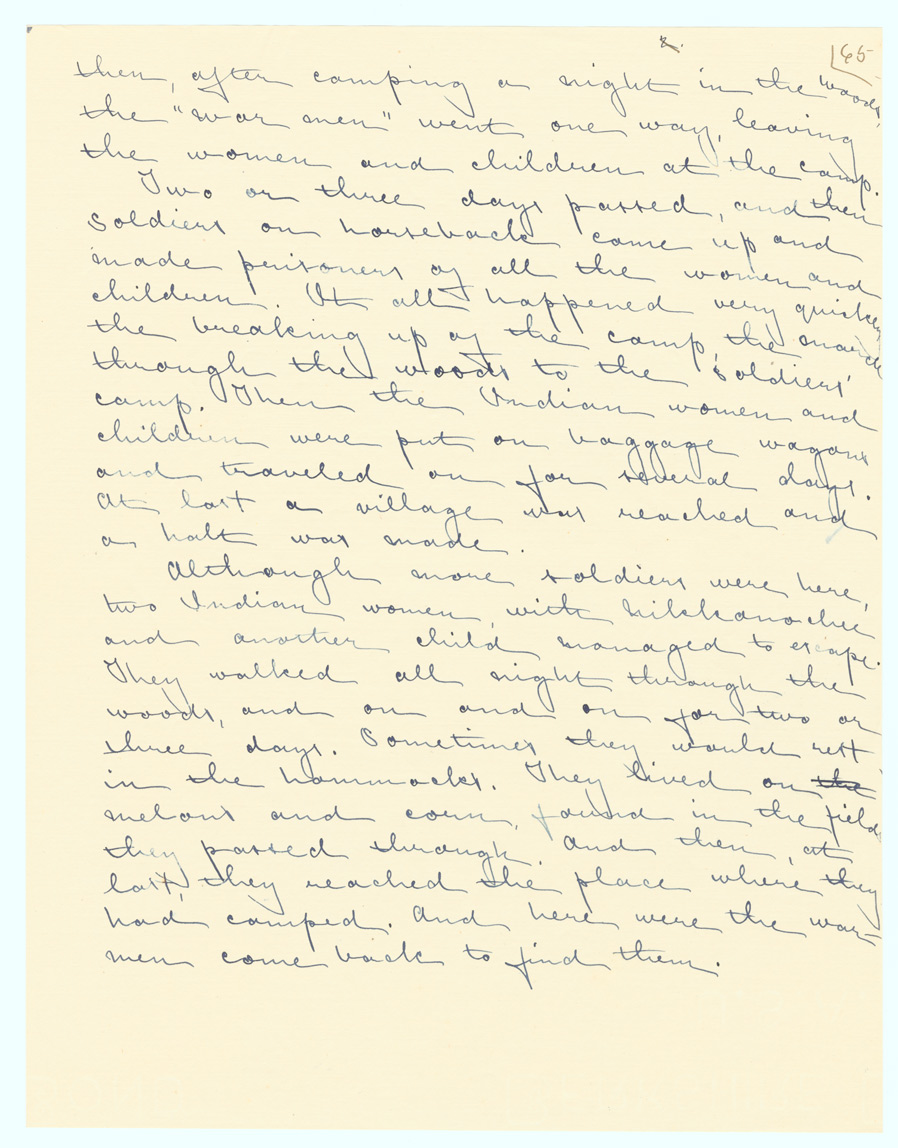 2.
65
then, after camping a night in the woods,
the "war men" went one way, leaving
the women and children at the camp.
Two or three days passed, and then
soldiers on horseback came up and
made prisoners of all the women and
children. It all happened very quickly,
the breaking up of the camp, the march
through the woods to the soldiers'
camp. Then the Indian women and
children were put on baggage wagons
and traveled on for several days.
At last a village was reached and
a halt was made.
Although more soldiers were here,
two Indian women, with Nikkanochee
and another child managed to escape.
They walked all night through the
woods, and on and on for two or
three days. Sometimes they would rest
in the hammocks. They lived on the
melons and corn, found in the fields
they passed through. And then, at
last, they reached the place where they
had camped. And here were the war-
men come back to find them.